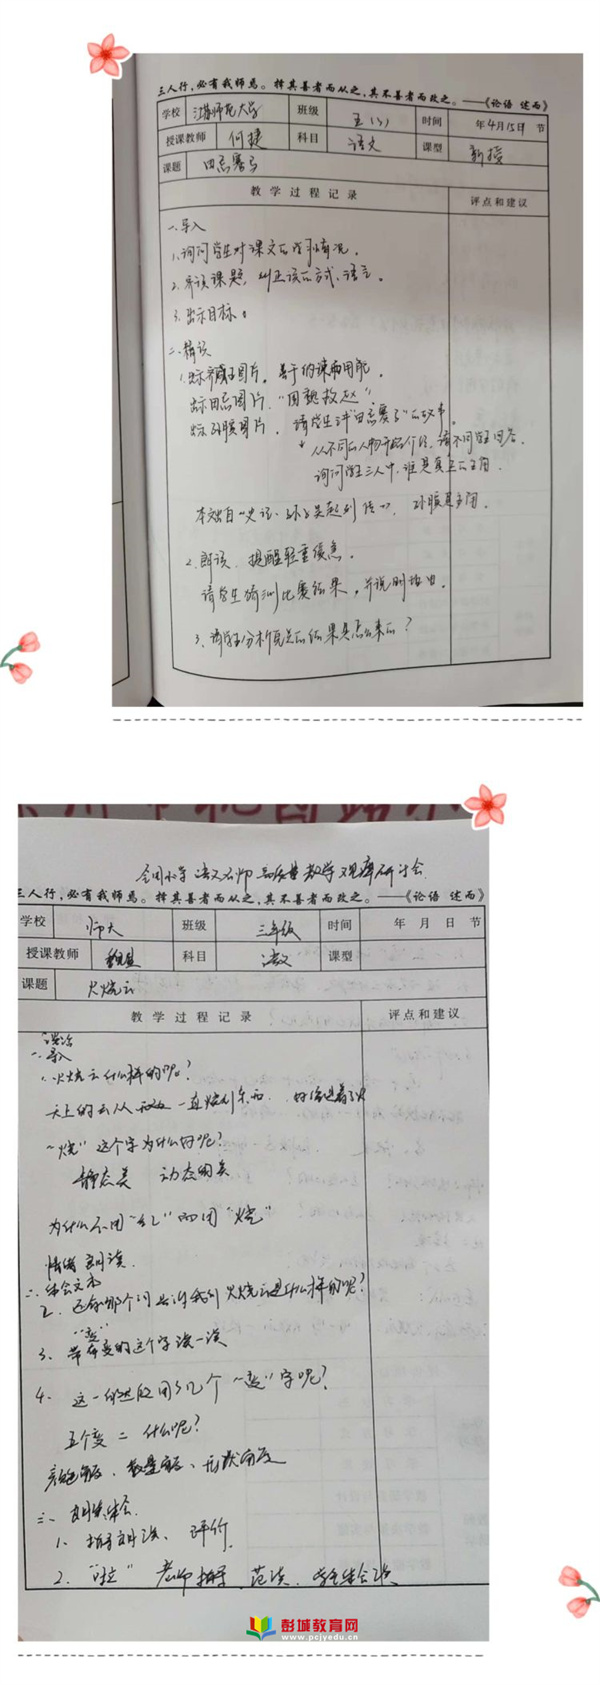 三人行,必有我师焉。择其善者而从之,其不善者而改之。——《论语 述而》
学校 江苏师范大学 班级 五(3) 时间 年4月15日 节
授课教师 何捷 科目 语文 课型 新授
课题 田忌赛马
教学过程记录 评点和建议
一、导入
1.询问学生对课文的预习情况。
2.齐读课题,纠正读的方式、语言。
3.出示目标。
二、精读
1.出示齐威王图片。善于纳谏而用能。
出示田忌图片。“围魏救赵”
出示孙膑图片。请学生讲“田忌赛马”的故事。
从不同的人物开始介绍,请不同学生回答。
询问学生三人中,谁是真正的主角。
本文出自《史记·孙子吴起列传》,孙膑是主角。
2.朗读,提醒轻重缓急。
请学生预测比赛结果,并说明理由。
3、请学生分析竞赛的结果是怎么来的?
全国小学语文名师高质量教学观摩研讨会
三人行,必有我师焉。择其善者而从之,其不善者而改之。——《论语 述而》
学校 师大 班级 三年级 时间 年 月 日 节
授课教师 科目 语文 课型
课题 火烧云
教学过程记录 评点和建议
一、导入
1.火烧云什么样的呢?
天上的云从西边一直烧到东边,好像是着了火
“烧”这个字为什么好呢?
静态美 动态的美
为什么不用“红”而用“烧”
情绪 朗读
二、体会文本
2.还有哪个词告诉我们火烧云是什么样的呢?
“变”
3、带有变的这个字读一读
4、这一自然段用了几个“变”字呢?
五个变=什么呢?
颜色角度、数量角度、形状角度
三、朗读体会
1、指导朗读、评价
2、老师指导 范读、学生体会读
彭城教育网
www.pcjyedu.cn